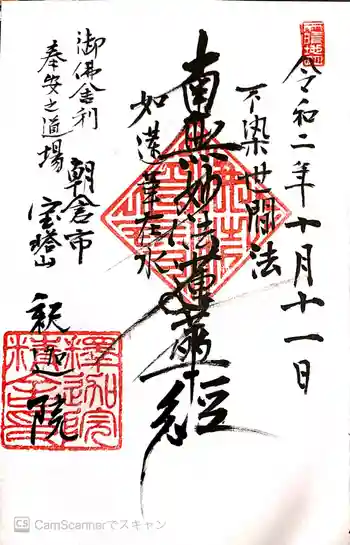 令和二年十月十一日
不染世間法
南無妙法蓮華経
如蓮華在水
御佛舎利
奉安之道場
朝倉市
宝塔山
釈迦院
CS CamScannerでスキャン